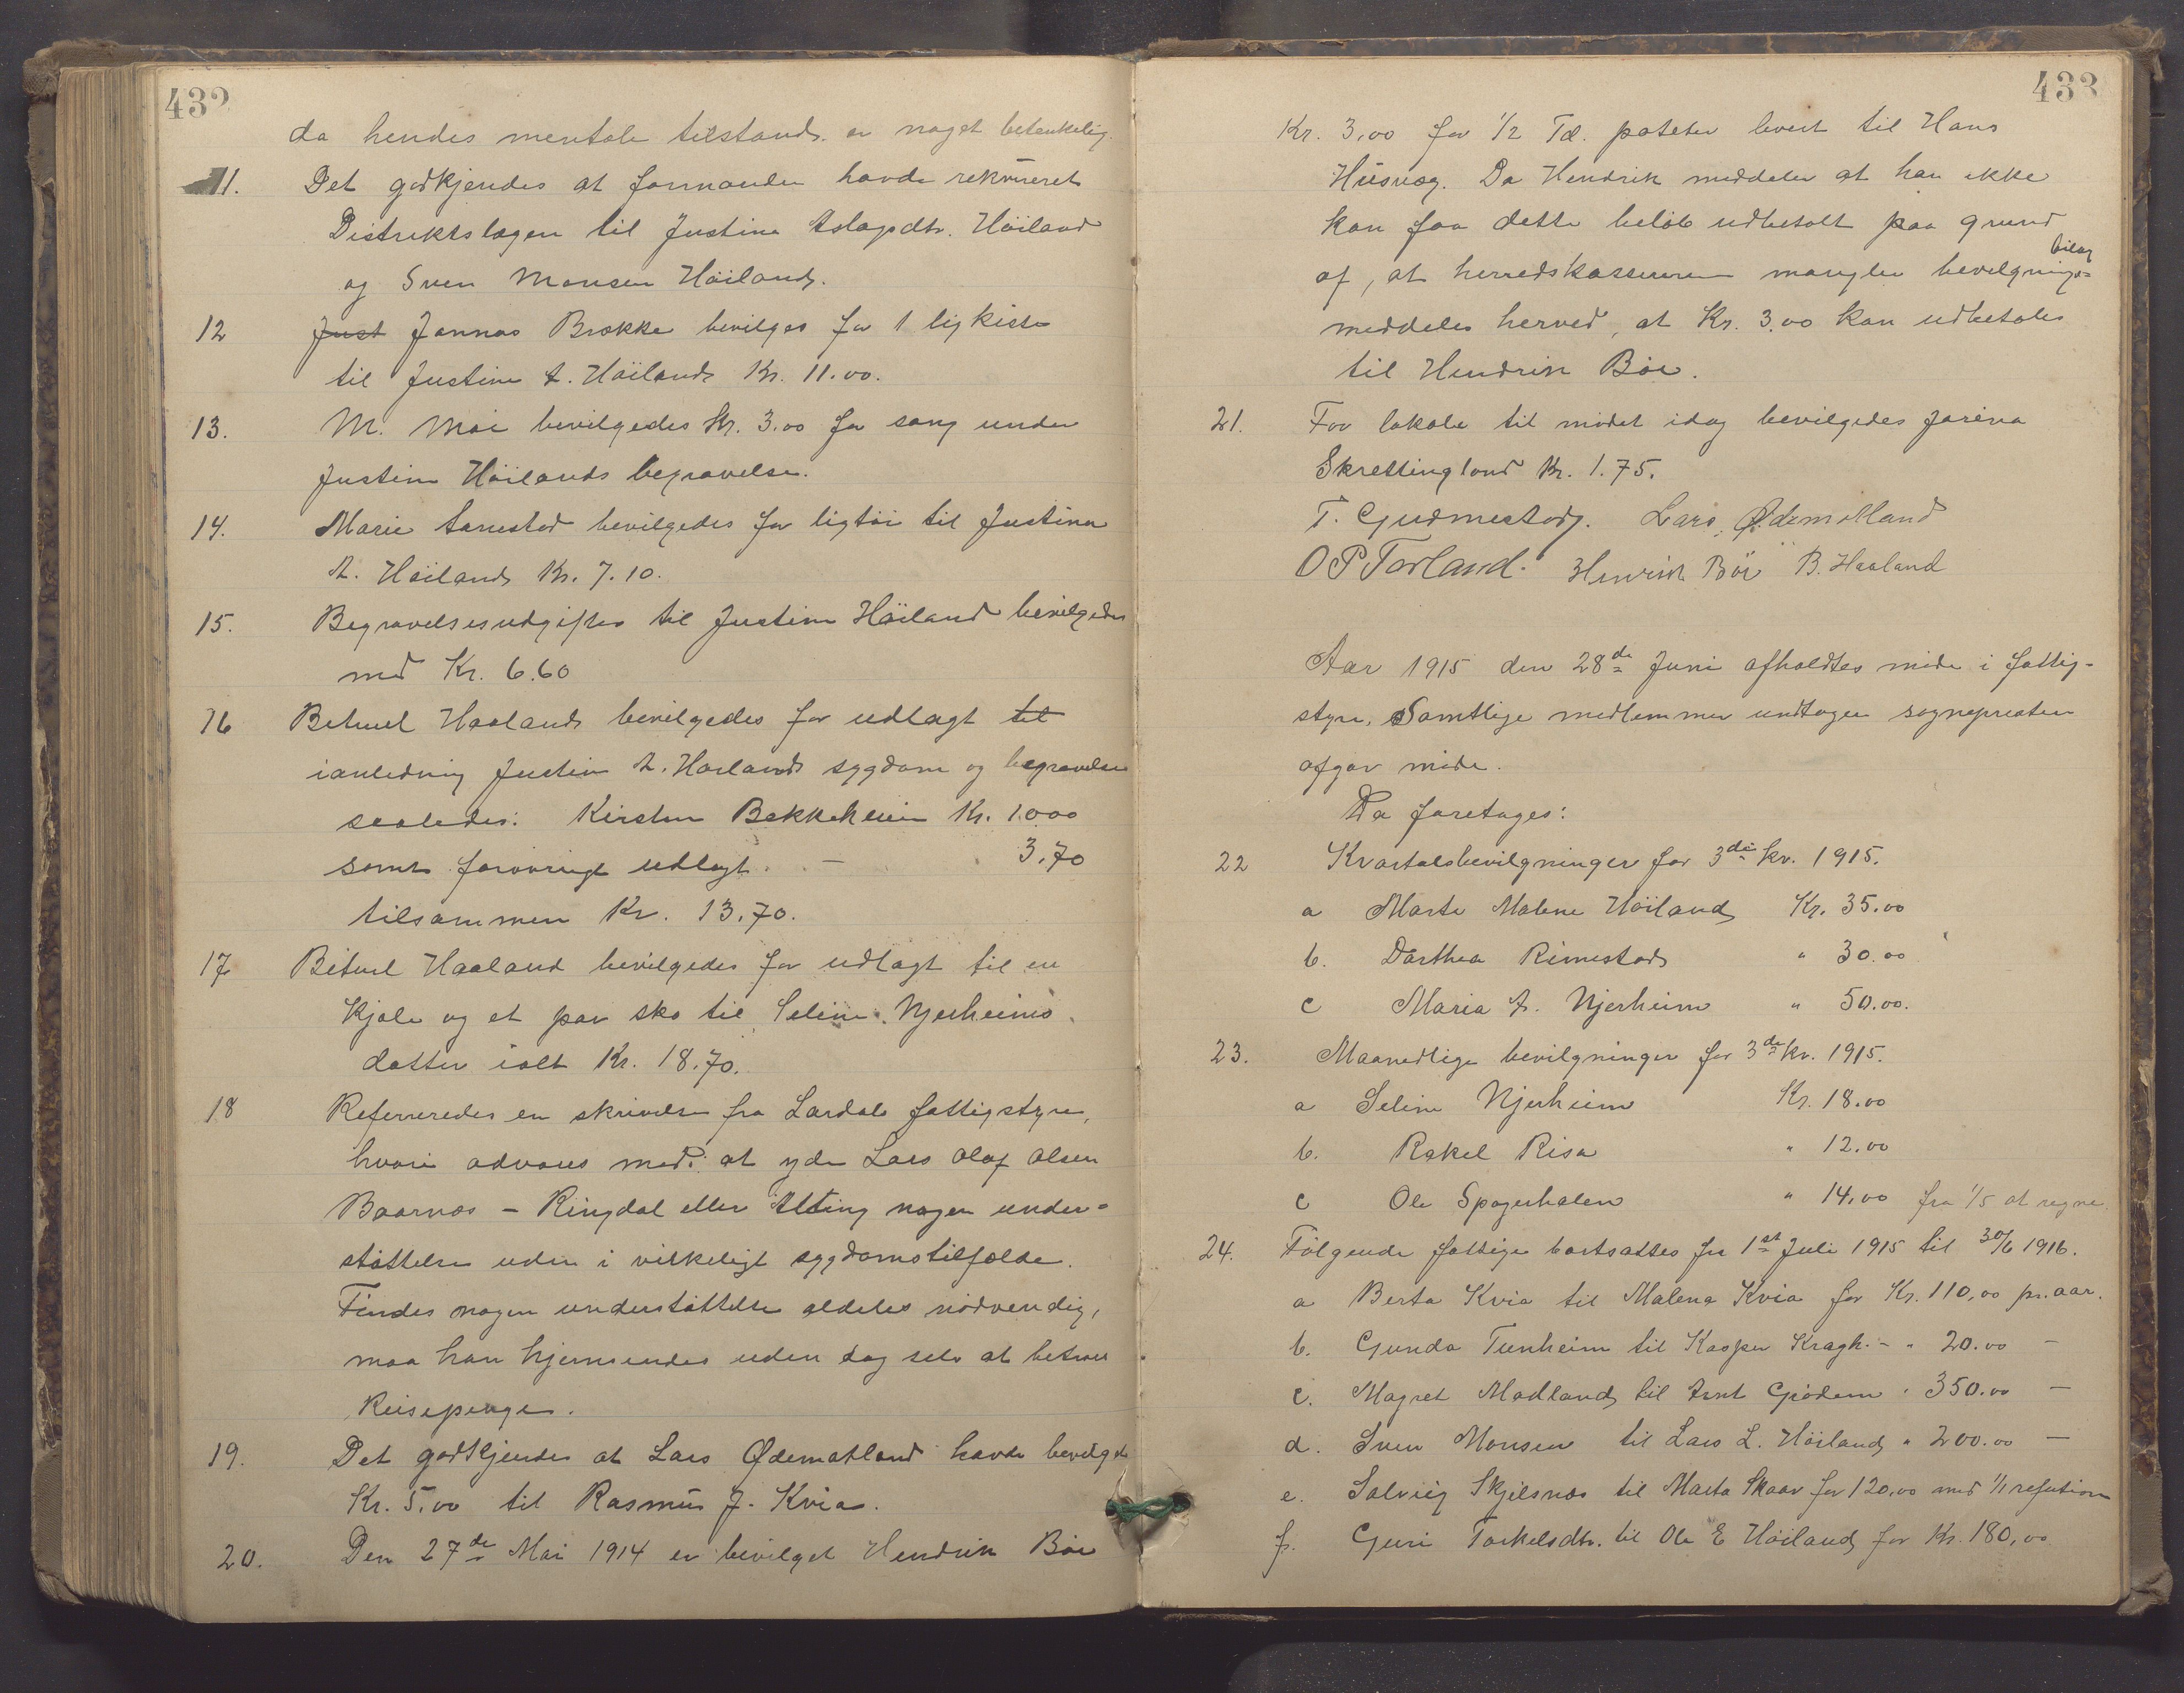 432
da hendes mentale tilstand er noget betenkelig.
11. Det godkjendes at formanden havde rekvireret
Distriktslægen til Justine Aslagsdtr. Höiland
og Sven Monsen Höiland.
12 Just Jonnas Brække bevilges for 1 ligkiste
til Justine A. Höiland Kr. 11.00.
13. M. Moi bevilgedes Kr. 3.00 for sang under
Justine Höilands begravelse.
14. Marie Aarrestad bevilgedes for ligtöi til Justine
A. Höiland Kr. 7.10.
15. Begravelsesudgifter til Justine Höiland bevilgedes
med Kr. 6.60
16 Betuel Haaland bevilgedes for udlagt til
ianledning Justine A. Höilands sygdom og begravelse
saaledes: Kirsten Bakkeheim Kr. 10.00
samt forövrigt udlagt. — 3,70
tilsammen Kr. 13,70.
17 Betuel Haaland bevilgedes for udlagt til en
Kjole og et par sko til Seline Njerheims
datter ialt Kr. 18.70.
18 Refereredes en skrivelse fra Lardals fattigstyre,
hvori advares mod at yde Lars Olaf Olsen
Baarnes - Ringdal eller Alting nogen under=
støttelse uden i virkeligt sygdomstilfælde.
Findes nogen understöttelse aldeles nödvendig,
maa han hjemsendes uden dog selv at betroes
Reisepenge.
19. Det godkjendes at Lars Ødemotland havde bevilget
Kr. 5.00 til Rasmus J. Kvia.
20. Den 27de Mai 1914 er bevilget Hendrik Böe
433
Kr. 3,00 for 1/2 Td. poteter levert til Hans
Husvæg. Da Hendrik meddeler at han ikke
kan faa dette belöb udbetalt paa grund
af, at herredskassereren mangler bevilgnings= bilag
meddeles herved, at Kr. 3.00 kan udbetales
til Hendrik Böe.
21. For lokale til mödet idag bevilgedes Jorina
Skrettingland Kr. 1.75.
T. Gudmestad. Lars Ødemotland
O P Torland. Henrik Böe B. Haaland
Aar 1915 den 28de Juni afholdtes möde i fattig-
styre, Samtlige medlemmer undtagen sognepresten
afgav möde.
Da foretages:
22 Kvartalsbevilgninger for 3die kv. 1915.
a Marte Malene Höiland Kr. 35.00
b. Dorthea Rimestad " 30.00
c Maria A. Njerheim " 50.00.
23. Maanedlige bevilgninger for 3de kv. 1915.
a Seline Njerheim Kr. 18.00
b. Rakel Risa " 12.00
c Ole Spogerhalen " 14,00 fra 1/5 at regne.
24. Fölgende fattige bortsattes fra 1st Juli 1915 til 30/6 1916.
a Berta Kvia til Malena Kvia for Kr. 110,00 pr. aar.
b. Gunda Tunheim til Kasper Kragh. - " 20.00 —
c. Magret Madland til Arnt Gjödem " 350.00 —
d. Sven Monsen til Lars L. Höiland " 200.00 —
e. Solveig Skjelsnes til Marta Skaar for 120,00 med 1/1 refution
f. Guri Torkelsdtr. til Ole E Höiland for Kr. 180,00